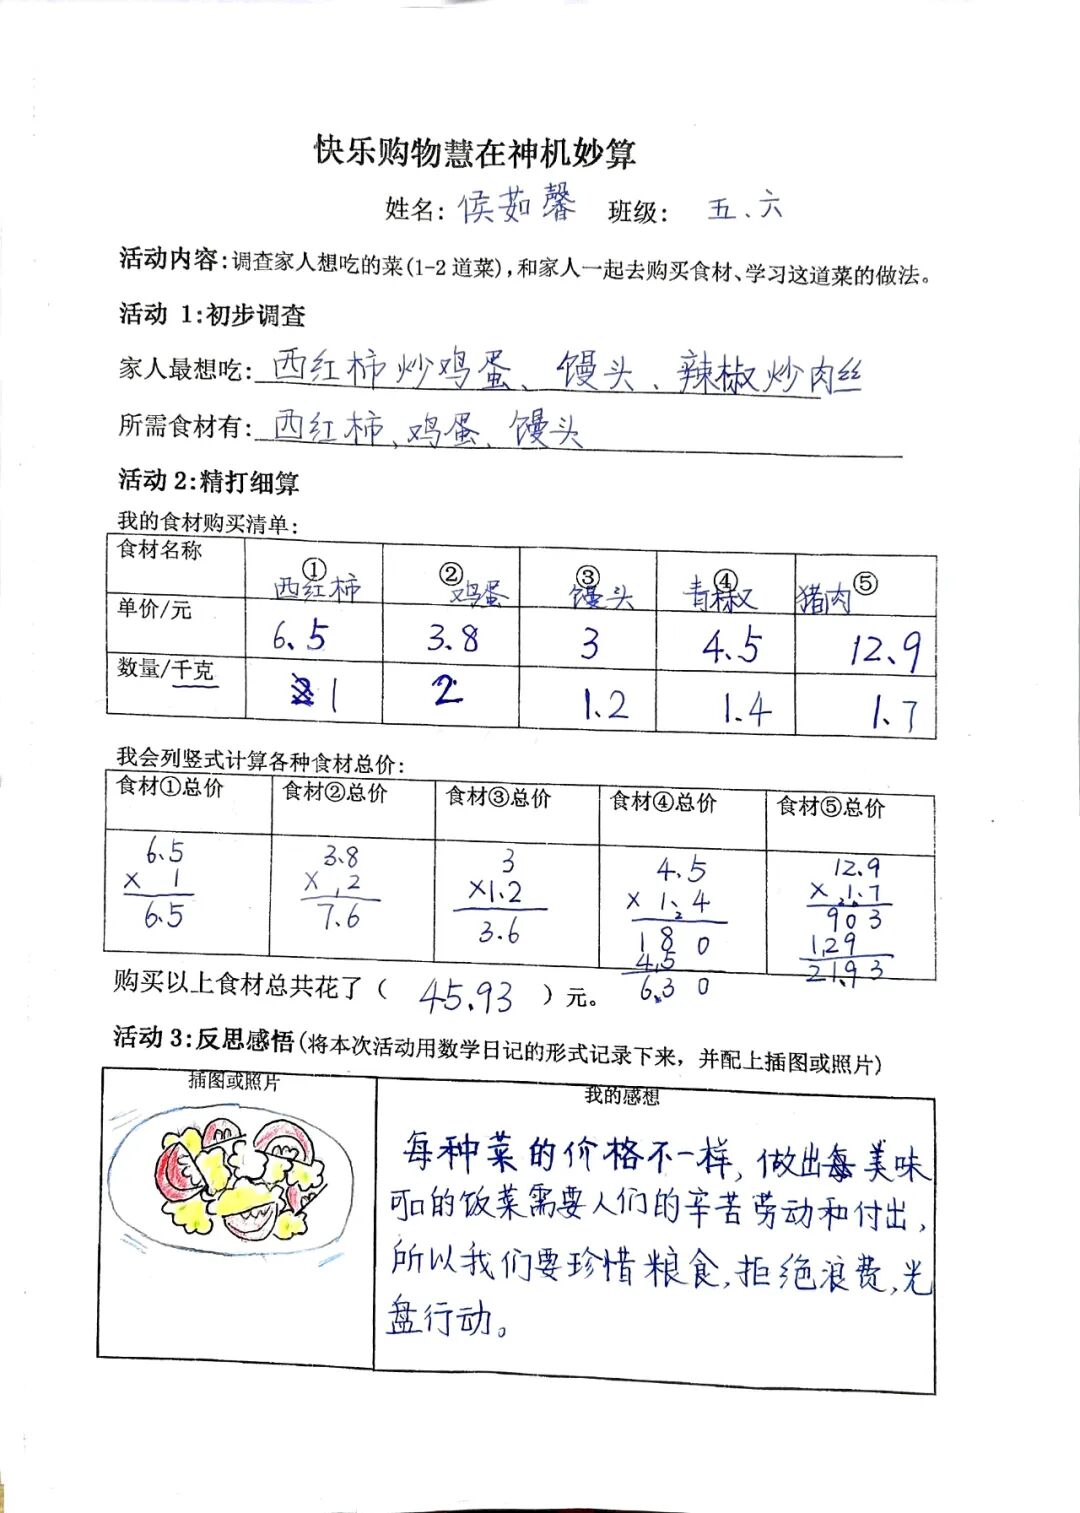 快乐购物慧在神机妙算
姓名：侯茹馨 班级： 五、六
活动内容：调查家人想吃的菜（1-2道菜），和家人一起去购买食材、学习这道菜的做法。
活动 1：初步调查
家人最想吃：西红柿炒鸡蛋、馒头、辣椒炒肉丝
所需食材有：西红柿、鸡蛋、馒头
活动 2：精打细算
我的食材购买清单：
食材名称 ①西红柿 ②鸡蛋 ③馒头 ④青椒 ⑤猪肉
单价/元 6.5 3.8 3 4.5 12.9
数量/千克 1 2 1.2 1.4 1.7
我会列竖式计算各种食材总价：
食材①总价 食材②总价 食材③总价 食材④总价 食材⑤总价
6.5 3.8 3 4.5 12.9
× 1 × 2 ×1.2 × 1.4 × 1.7
6.5 7.6 3.6 180 903
45 129
6.30 21.93
购买以上食材总共花了（ 45.93 ）元。
活动 3：反思感悟（将本次活动用数学日记的形式记录下来，并配上插图或照片）
插图或照片 我的感想
每种菜的价格不一样，做出美味
可口的饭菜需要人们的辛苦劳动和付出，
所以我们要珍惜粮食，拒绝浪费，光
盘行动。